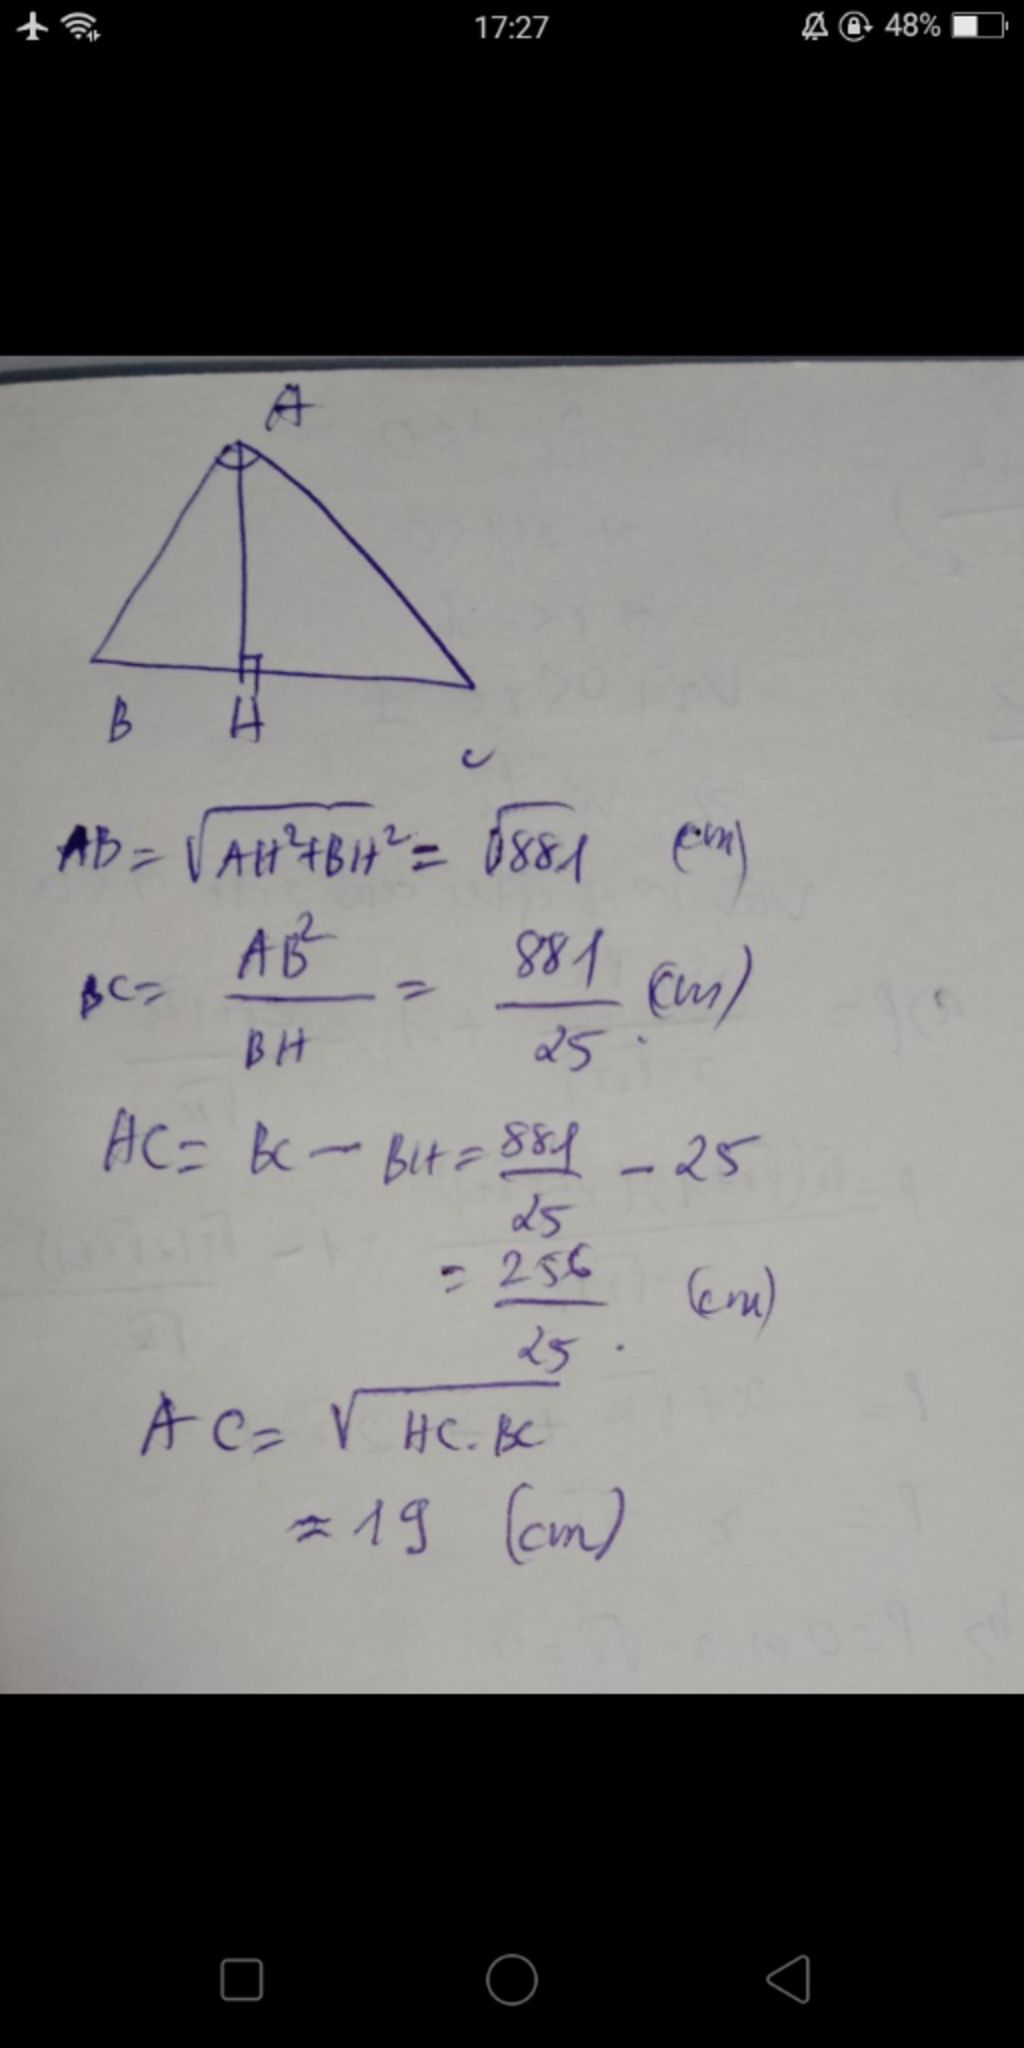 17:27 48%
A
B H C
AB = √AH²+BH² = √881 (cm)
BC = AB² / BH = 881 / 25 (cm)
AC = BC - BH = 881 / 25 - 25
= 256 / 25 (cm)
AC = √HC.BC
≈ 19 (cm)